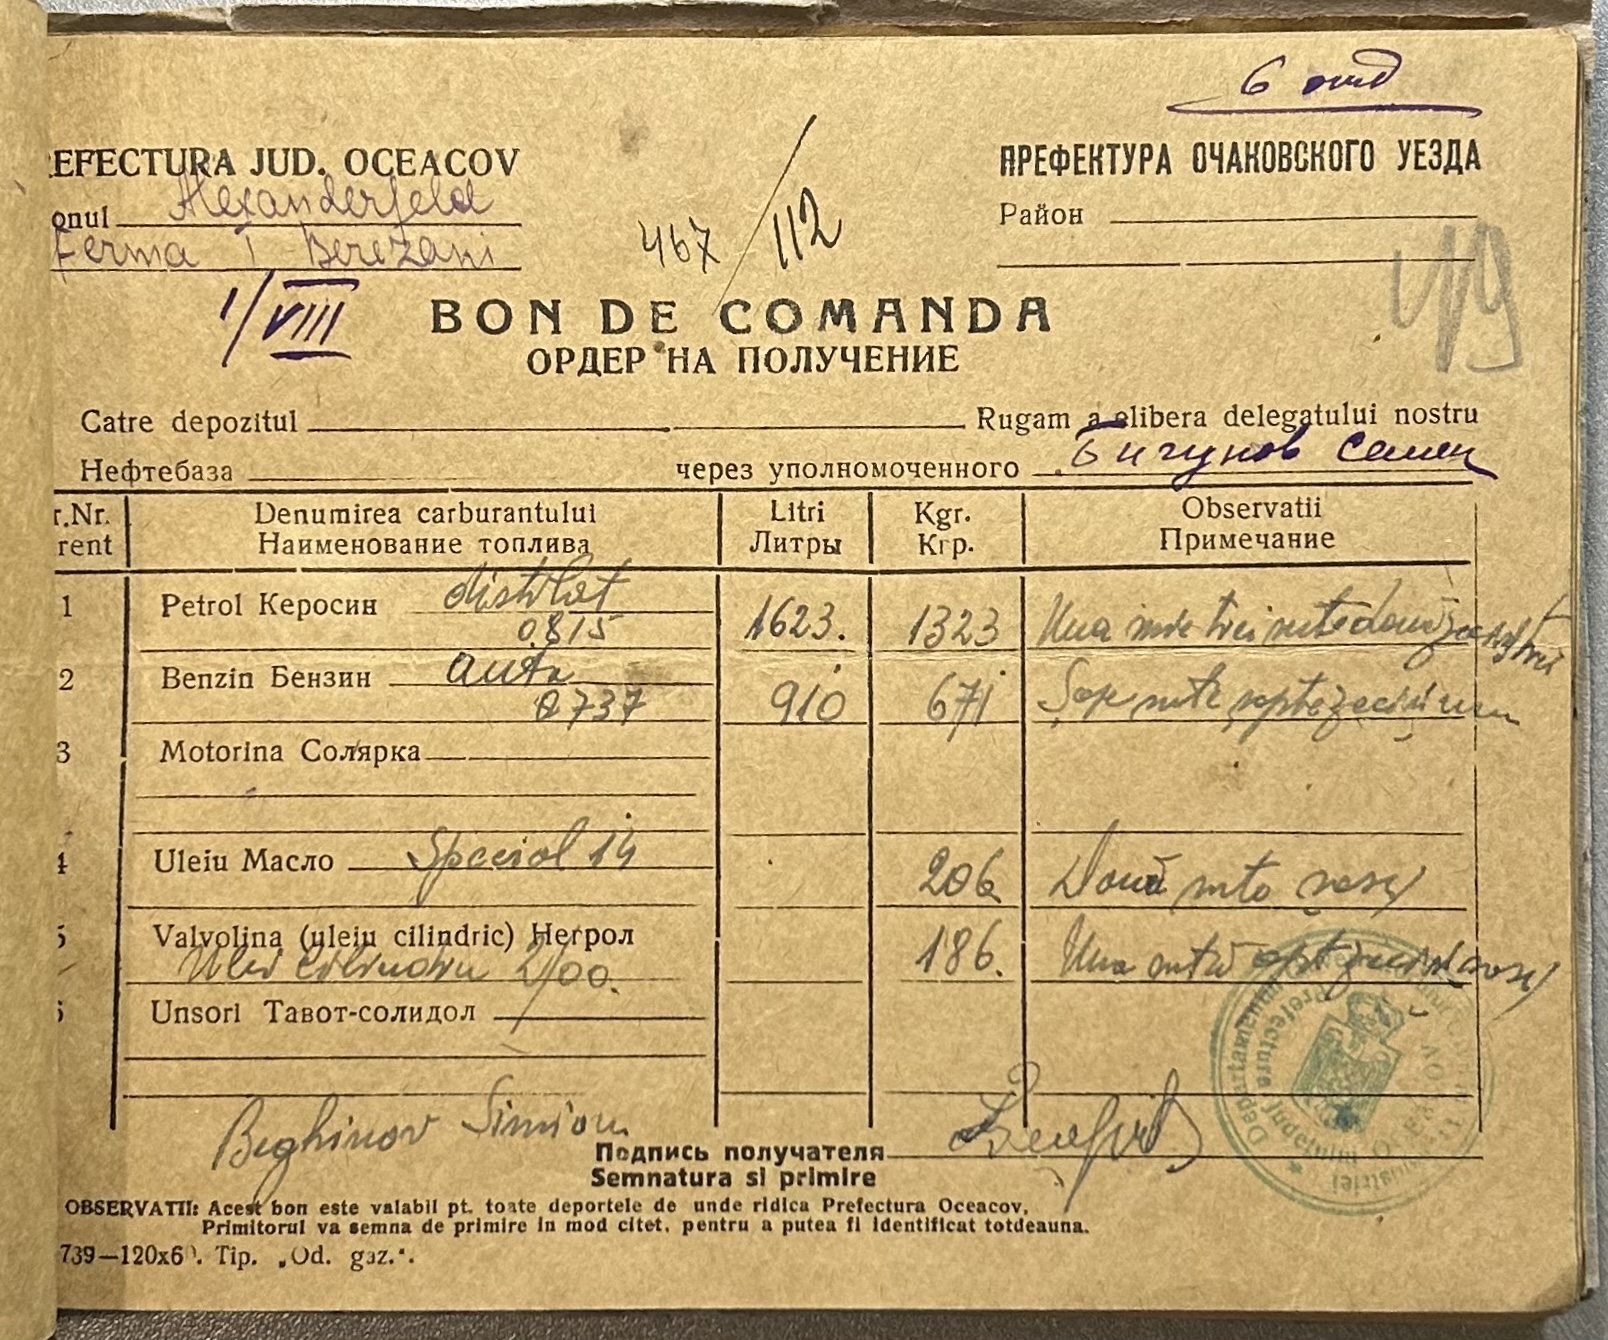 6 отд
EFECTURA JUD. OCEACOV
ПРЕФЕКТУРА ОЧАКОВСКОГО УЕЗДА
onul Alexanderfeld
Район
ferma I Berezani
467/112
119
1/VIII
BON DE COMANDA
ОРДЕР НА ПОЛУЧЕНИЕ
Catre depozitul Rugam a elibera delegatului nostru
Нефтебаза через уполномоченного Бигунов Семен
r.Nr. Denumirea carburantului Litri Kgr. Observatii
rent Наименование топлива Литры Кгр. Примечание
1 Petrol Керосин distilat 1623. 1323 Una mie trei sute două zeci și trei
0815
2 Benzin Бензин auto 910 671 Șase sute șapte zeci și unu
0737
3 Motorina Солярка
4 Uleiu Масло Special 14 206 Două sute șase
5 Valvolina (uleiu cilindric) Негрол 186. Una sută opt zeci și șase
Ulei cilindru 2/00.
Unsori Тавот-солидол
Departamentul Industriei
Prefectura Județului Oceacov
Beghinov Simion
Подпись получателя
Semnatura si primire
OBSERVATII: Acest bon este valabil pt. toate deportele de unde ridica Prefectura Oceacov.
Primitorul va semna de primire in mod citet, pentru a putea fi identificat totdeauna.
739—120x60. Tip. „Od. gaz.“.